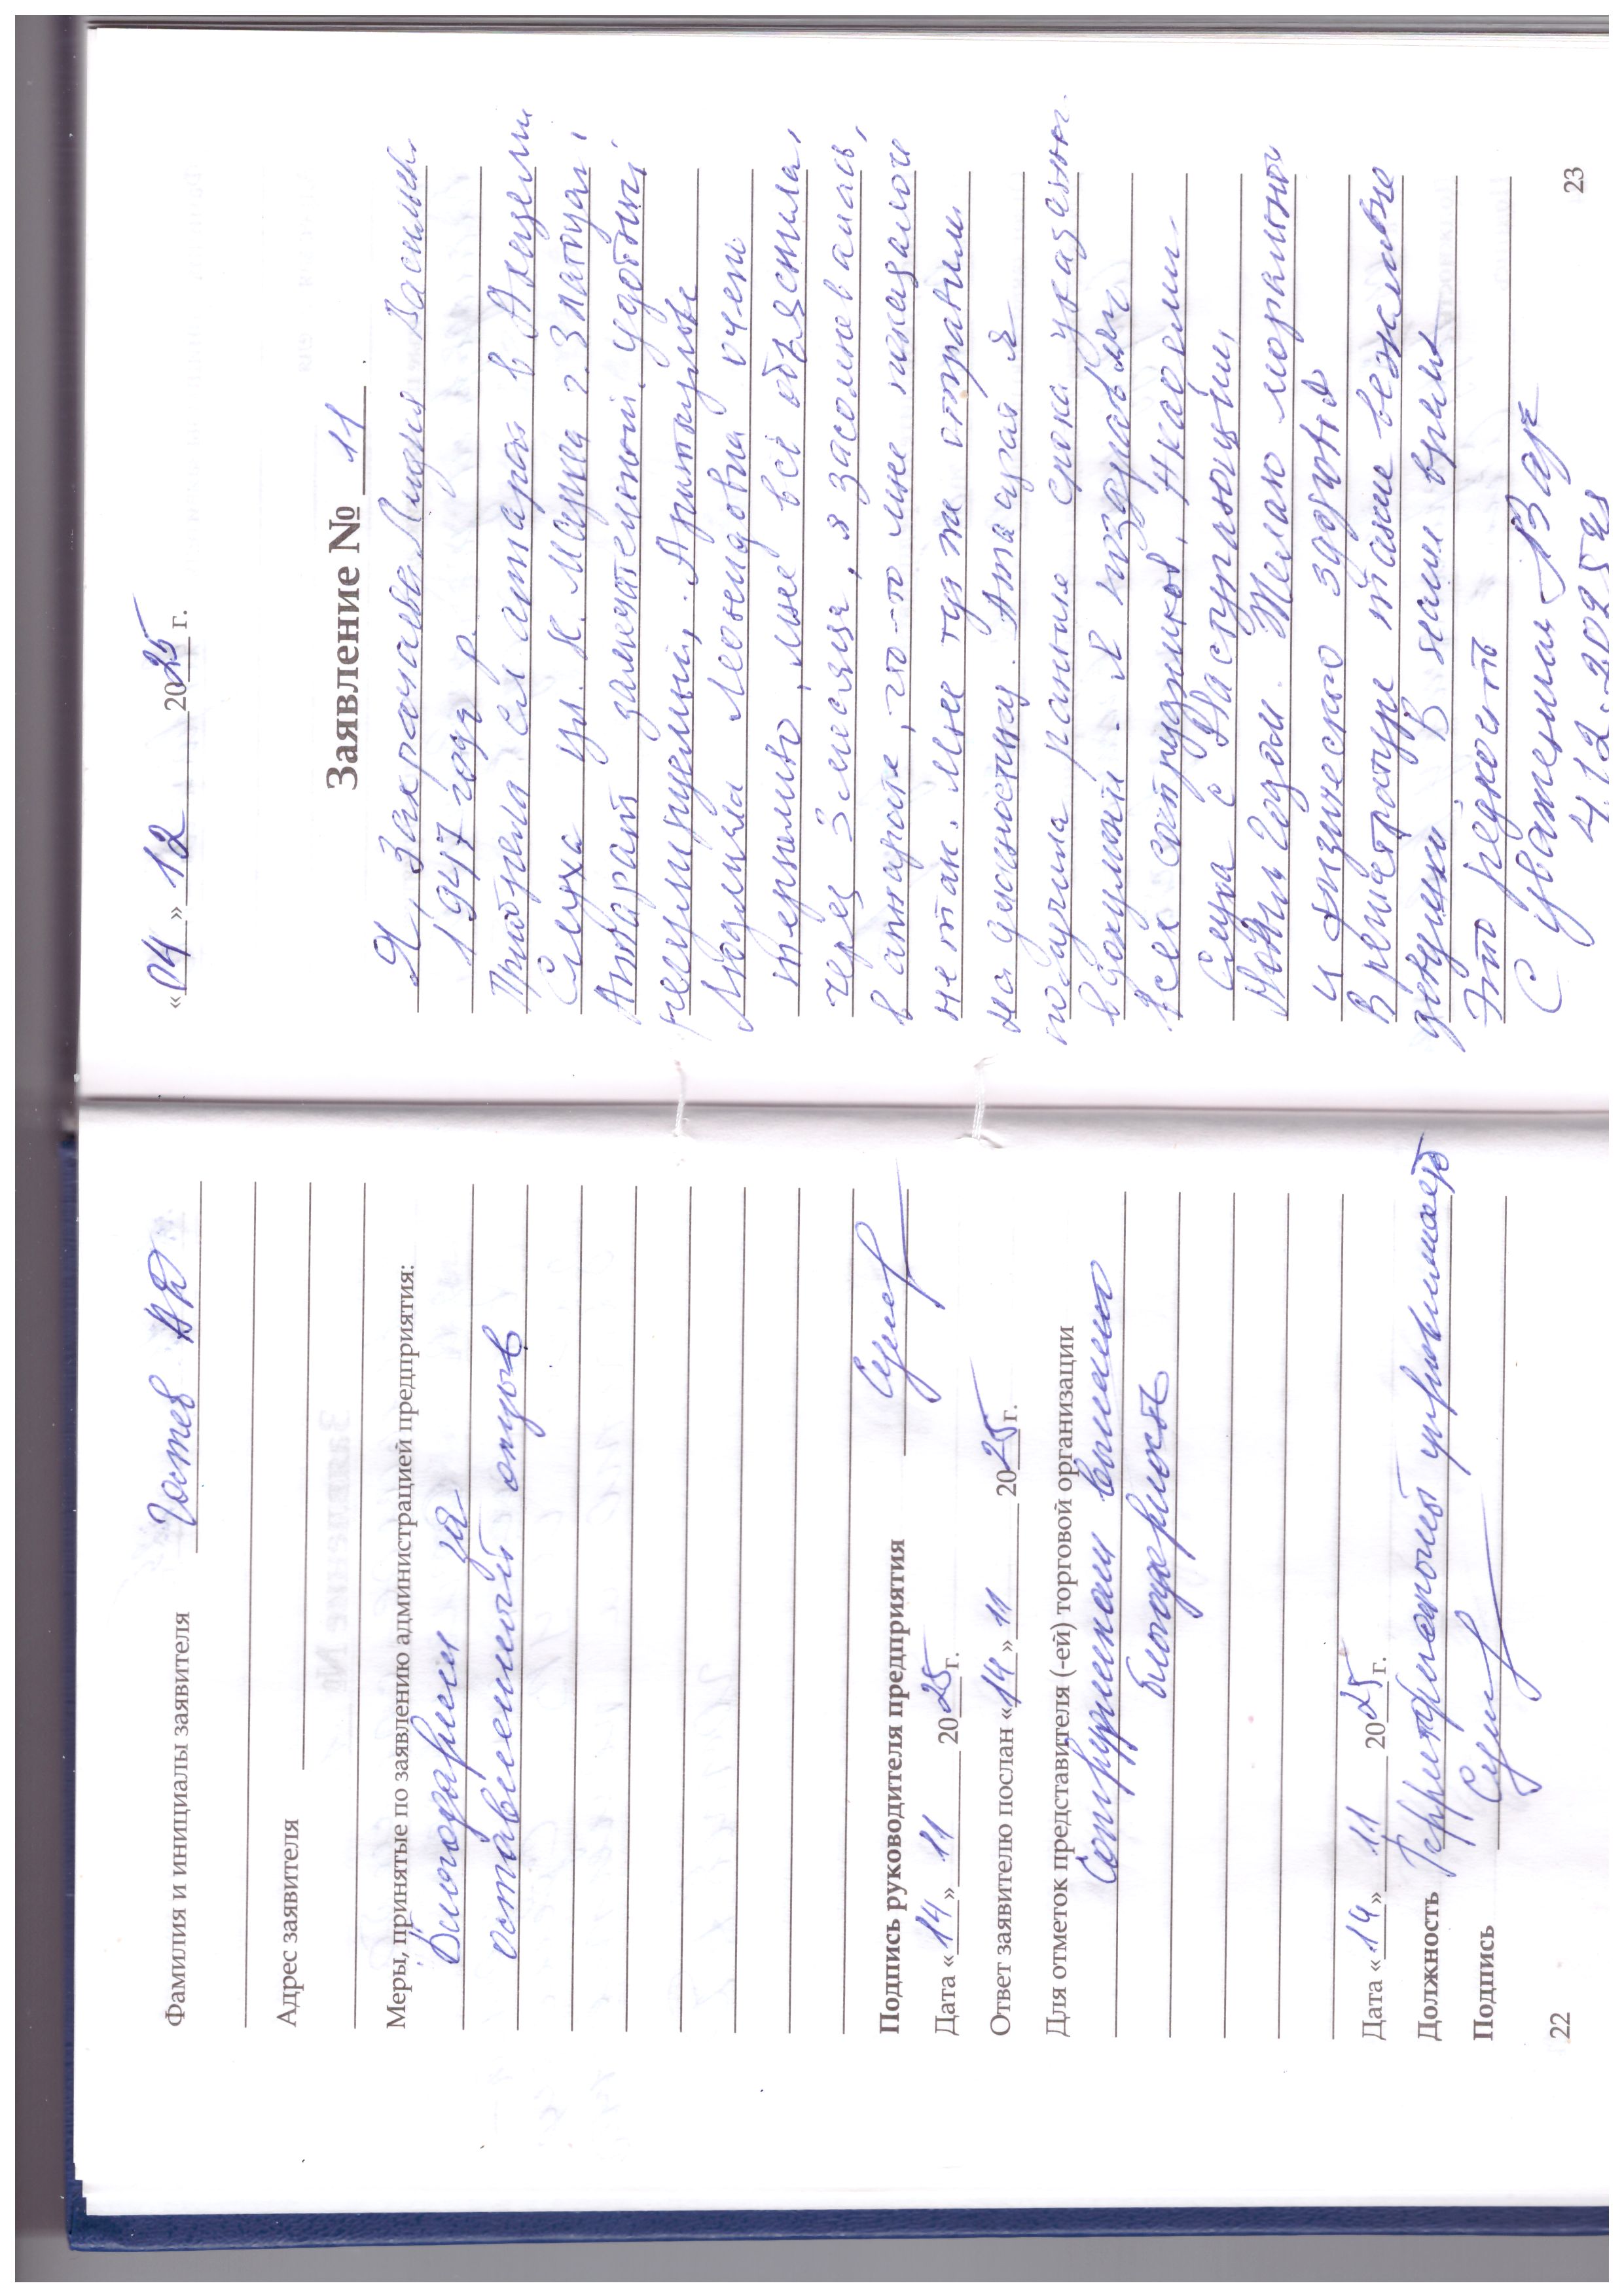 Фамилия и инициалы заявителя Гостев
Адрес заявителя
Меры, принятые по заявлению администрацией предприятия:
Благодарим за
оставленный отзыв
Подпись руководителя предприятия
Дата «14» 11 2025г.
Ответ заявителю послан «14» 11 2025г.
Для отметок представителя (-ей) торговой организации
Сотрудникам вынесено
благодарность
Дата «14» 11 2025г.
Должность Территориальный управляющий
Подпись
22
«04» 12 2025 г.
Заявление № 11
Я, Захарчева Лидия Васильев.
1947 года р.
Приобрела сл аппарат в Акцепт
Слуха ул. К. Маркса г. Златоуст
Аппарат замечательный, удобный
Людмила Леонидовна очень
терпимо, мне всё объяснила.
Через 3 месяца, я засомневалась,
в аппарате, что-то мне показалось
не так. Мне тут же отправили
на диагностику. Аппарат я
получила раньше срока указанног.
в документе. Я поздравляю
всех сотрудников,
Слуха с Наступающим,
Новым Годом. Желаю морального
и физического здоровья
В регистратуре также вежливые
девушки В наше время
Это редкость
С уважением Зар
4.12.2025г
23